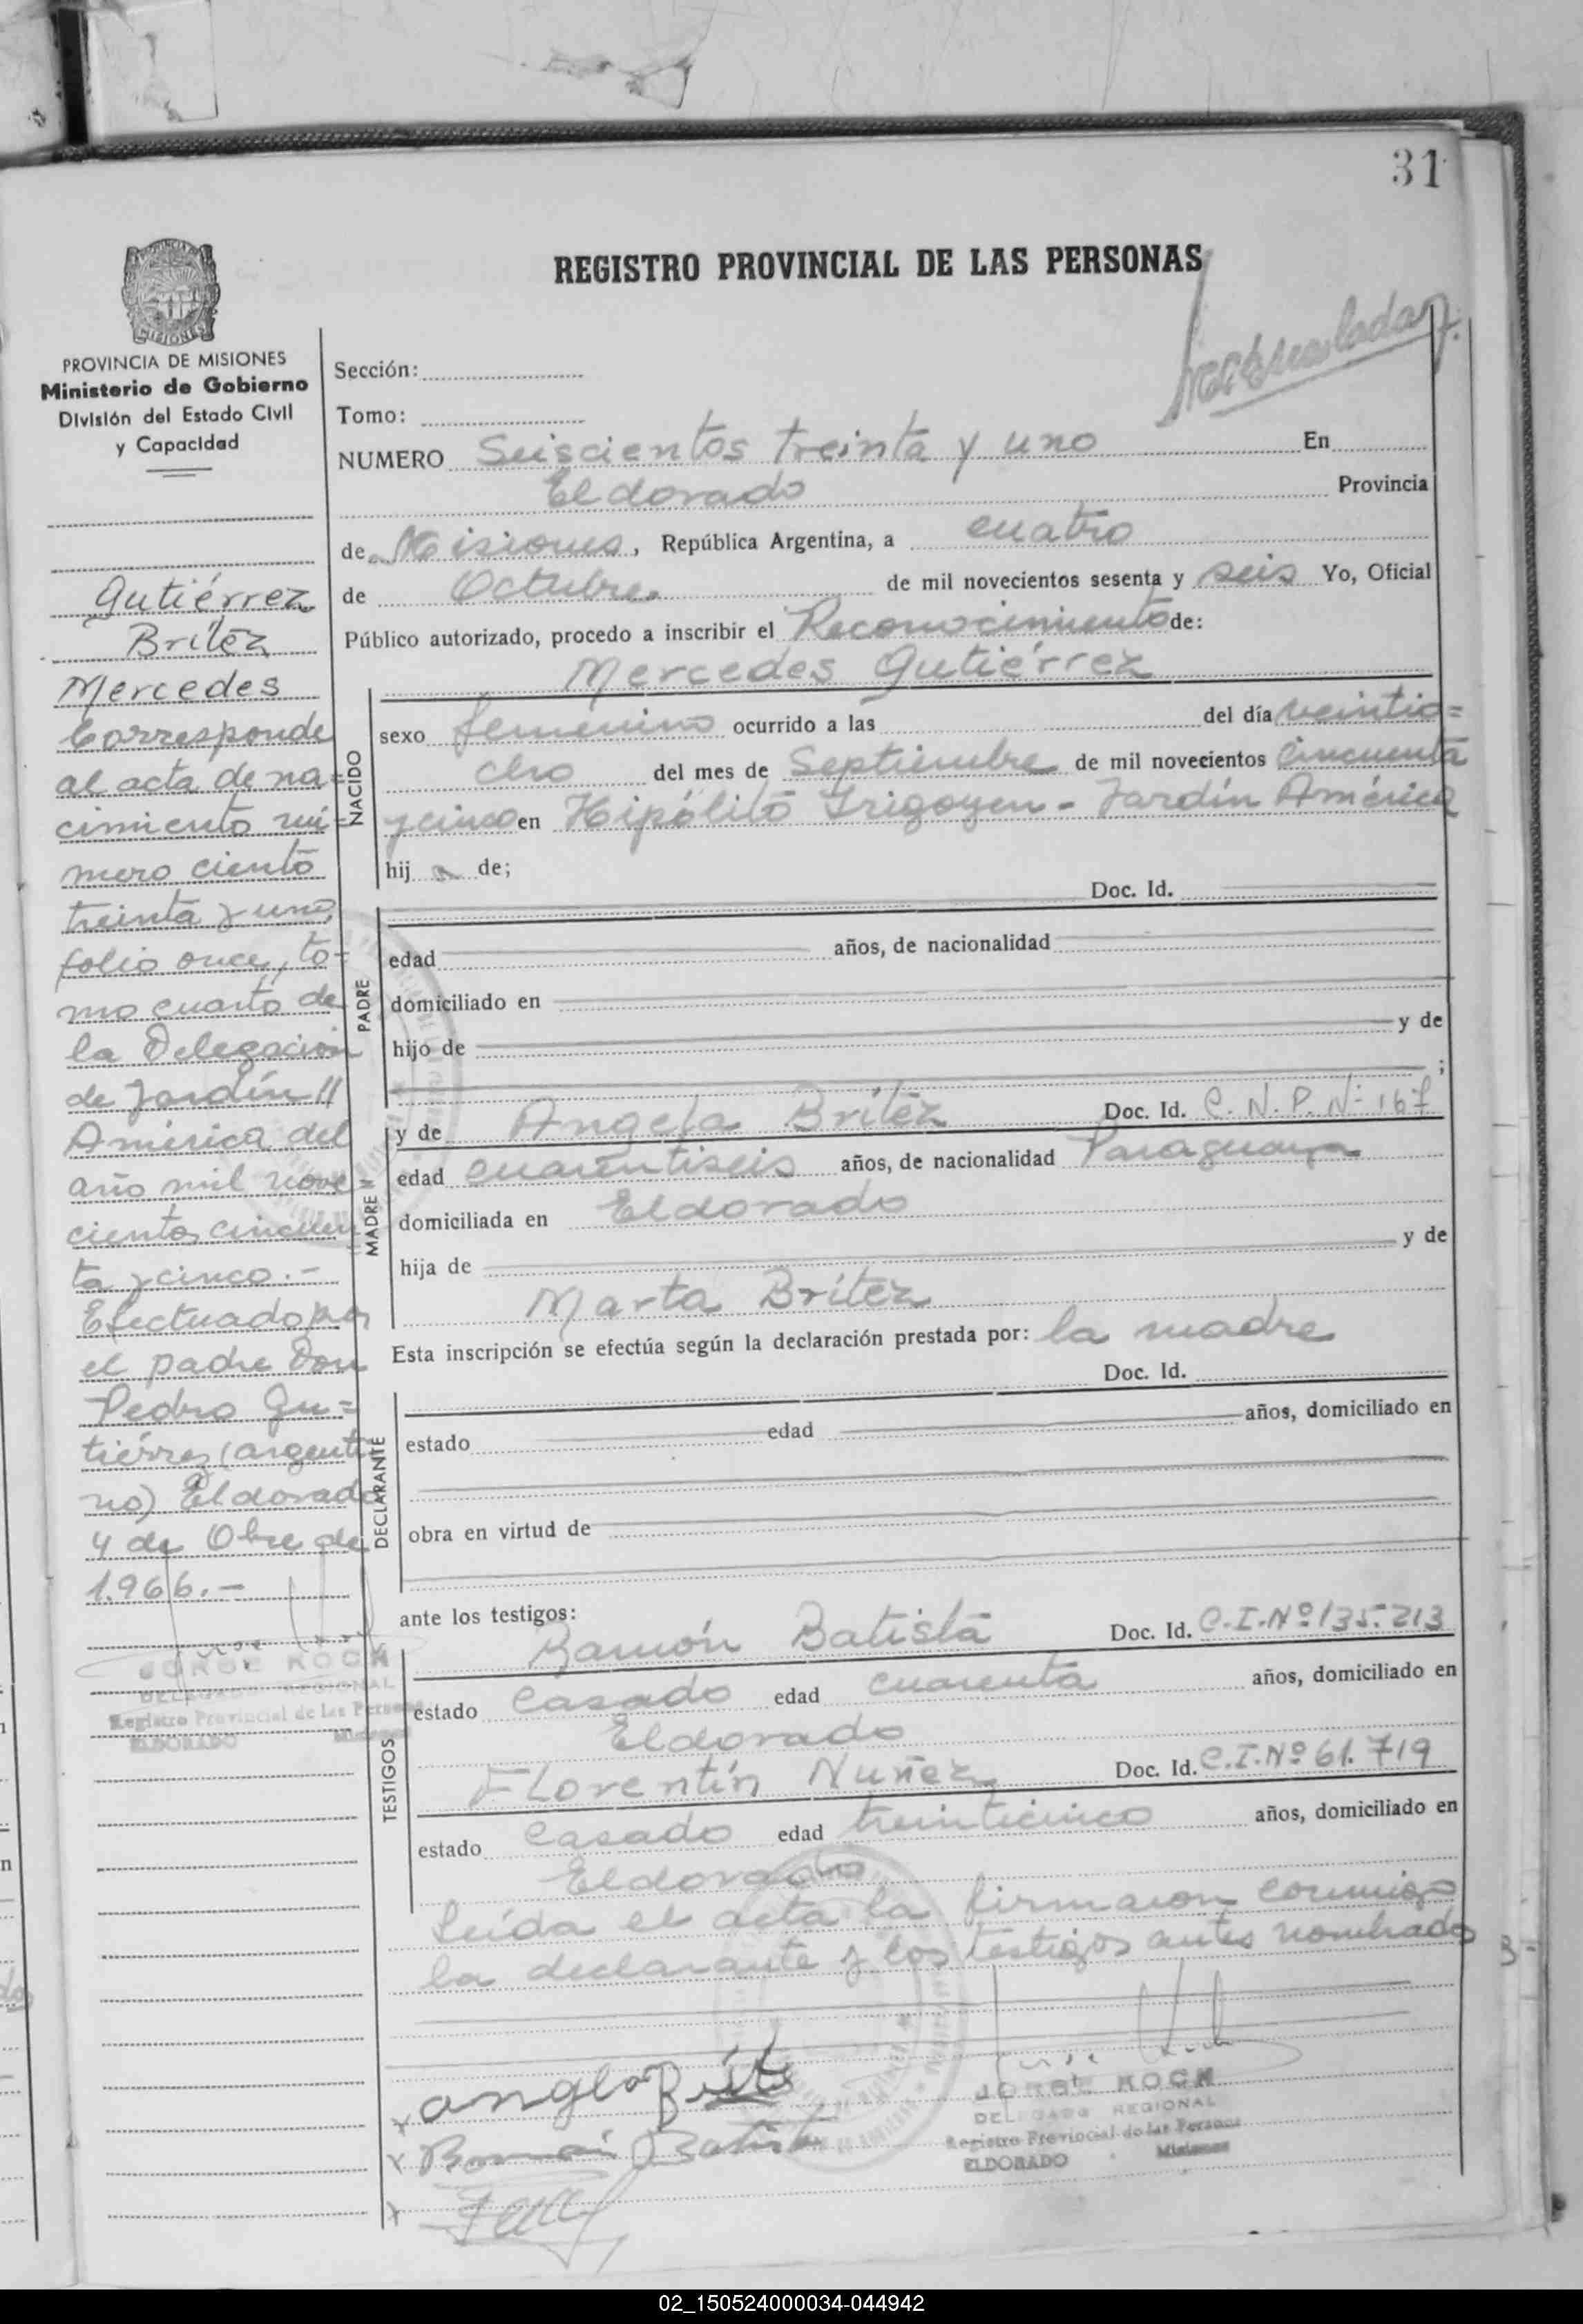 31
REGISTRO PROVINCIAL DE LAS PERSONAS
PROVINCIA DE MISIONES
Ministerio de Gobierno
División del Estado Civil
y Capacidad
Gutiérrez
Britez
Mercedes
Corresponde
al acta de na=
cimiento nú=
mero ciento
treinta y uno,
folio once, to=
mo cuarto de
la Delegación
de Jardín //
América del
año mil nove=
cientos cincuen
ta y cinco.-
Efectuado por
el padre Don
Pedro Gu=
tiérrez (argenti
no) Eldorado
4 de Obre de
1.966.-
JORGE KOCH
DELEGADO REGIONAL
Registro Provincial de las Personas
ELDORADO Misiones
Sección:
Tomo:
NUMERO Seiscientos treinta y uno En
Eldorado Provincia
de Misiones, República Argentina, a cuatro
de Octubre de mil novecientos sesenta y seis Yo, Oficial
Público autorizado, procedo a inscribir el Reconocimiento de:
Mercedes Gutiérrez
NACIDO
sexo femenino ocurrido a las del día veintio=
cho del mes de Septiembre de mil novecientos cincuenta
y cinco en Hipólito Irigoyen - Jardín América
hij a de;
Doc. Id.
PADRE
edad años, de nacionalidad
domiciliado en
hijo de y de
;
MADRE
y de Angela Britez Doc. Id. C. N. P. Nº 167
edad cuarentiseis años, de nacionalidad Paraguaya
domiciliada en Eldorado
hija de y de
Marta Britez
Esta inscripción se efectúa según la declaración prestada por: la madre
Doc. Id.
DECLARANTE
estado edad años, domiciliado en
obra en virtud de
ante los testigos:
TESTIGOS
Ramón Batista Doc. Id. C.I.Nº 135.213
estado Casado edad cuarenta años, domiciliado en
Eldorado
Florentín Nuñez Doc. Id. C.I.Nº 61.719
estado Casado edad treinticinco años, domiciliado en
Eldorado
Leída el acta la firmaron conmigo
la declarante y los testigos antes nombrados
JORGE KOCH
DELEGADO REGIONAL
Registro Provincial de las Personas
ELDORADO Misiones
02_150524000034-044942